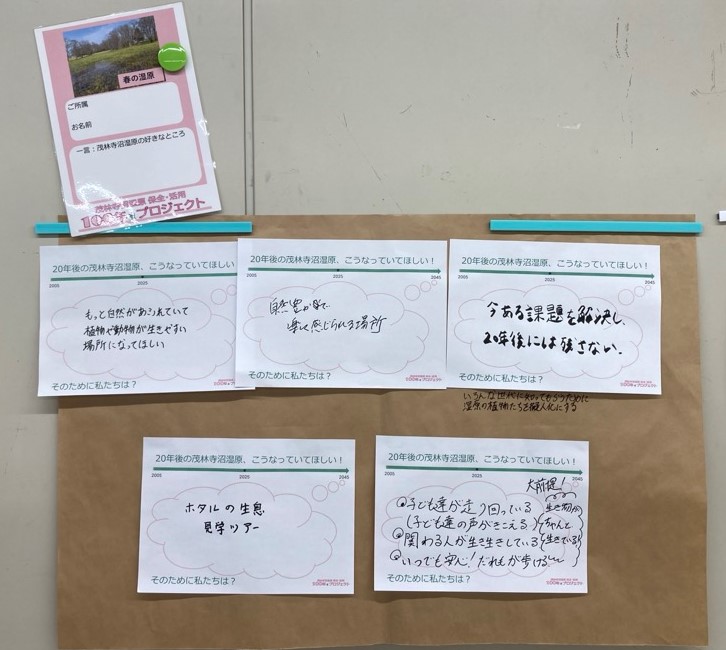 春の湿原
ご所属
お名前
一言：茂林寺沼湿原の好きなところ
茂林寺沼湿原 保全・活用
100年プロジェクト
20年後の茂林寺沼湿原、こうなっていてほしい！
2005
2025
もっと自然があふれていて
植物や動物が生きやすい
場所になってほしい
そのために私たちは？
20年後の茂林寺沼湿原、こうなっていてほしい！
2005
2025
2045
自然豊かで
楽しく感じられる場所
そのために私たちは？
100年プロジェクト
20年後の茂林寺沼湿原、こうなっていてほしい！
2005
2025
2045
今ある課題を解決し、
20年後には残さない。
そのために私たちは？
100年プロジェクト
いろんな世代に知ってもらうために
湿原の植物たちを擬人化する
20年後の茂林寺沼湿原、こうなっていてほしい！
2005
2025
2045
ホタルの生息
見学ツアー
そのために私たちは？
100年プロジェクト
20年後の茂林寺沼湿原、こうなっていてほしい！
2005
2025
2045
大前提！
生き物が
ちゃんと
生きている
子ども達が走り回っている
(子ども達の声がきこえる)
関わる人が生き生きしている
いつでも安心！だれもが歩ける
そのために私たちは？
100年プロジェクト